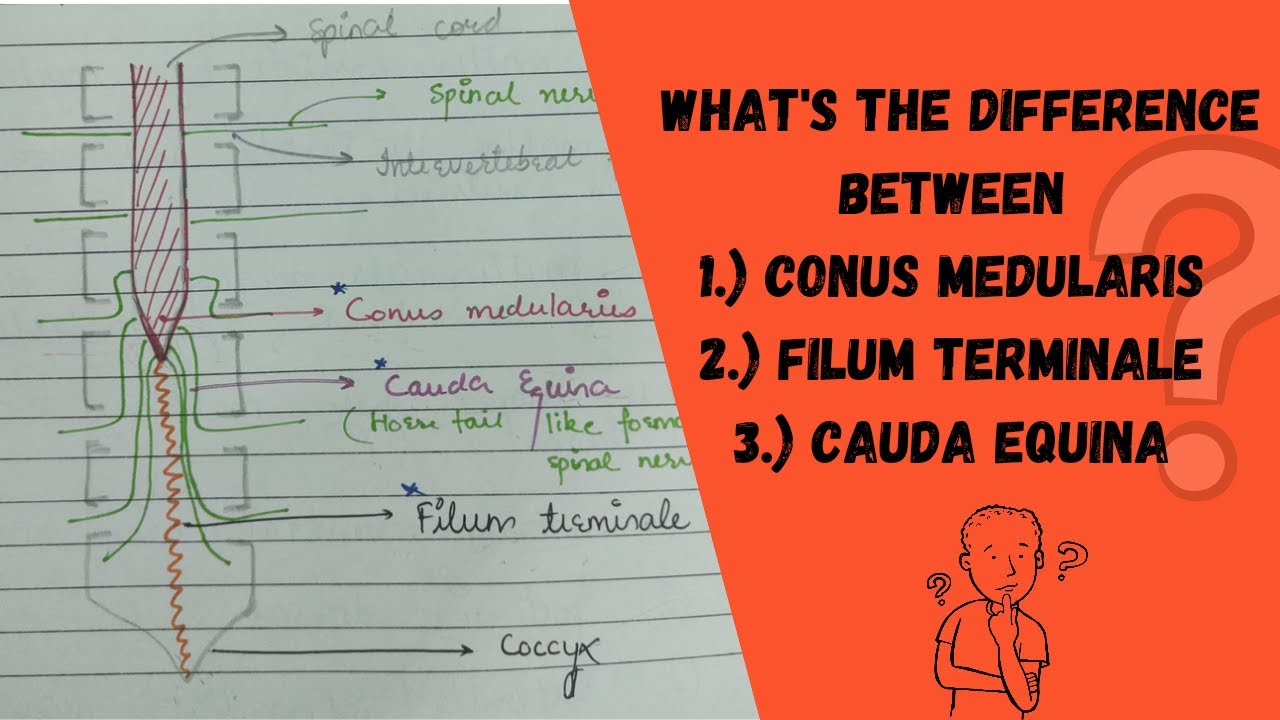 Spinal cord
Spinal
Conus medularius
Cauda Equina
(Horse tail like
spinal
Filum terminale
Coccyx
WHAT'S THE DIFFERENCE
BETWEEN
1.) CONUS MEDULARIS
2.) FILUM TERMINALE
3.) CAUDA EQUINA